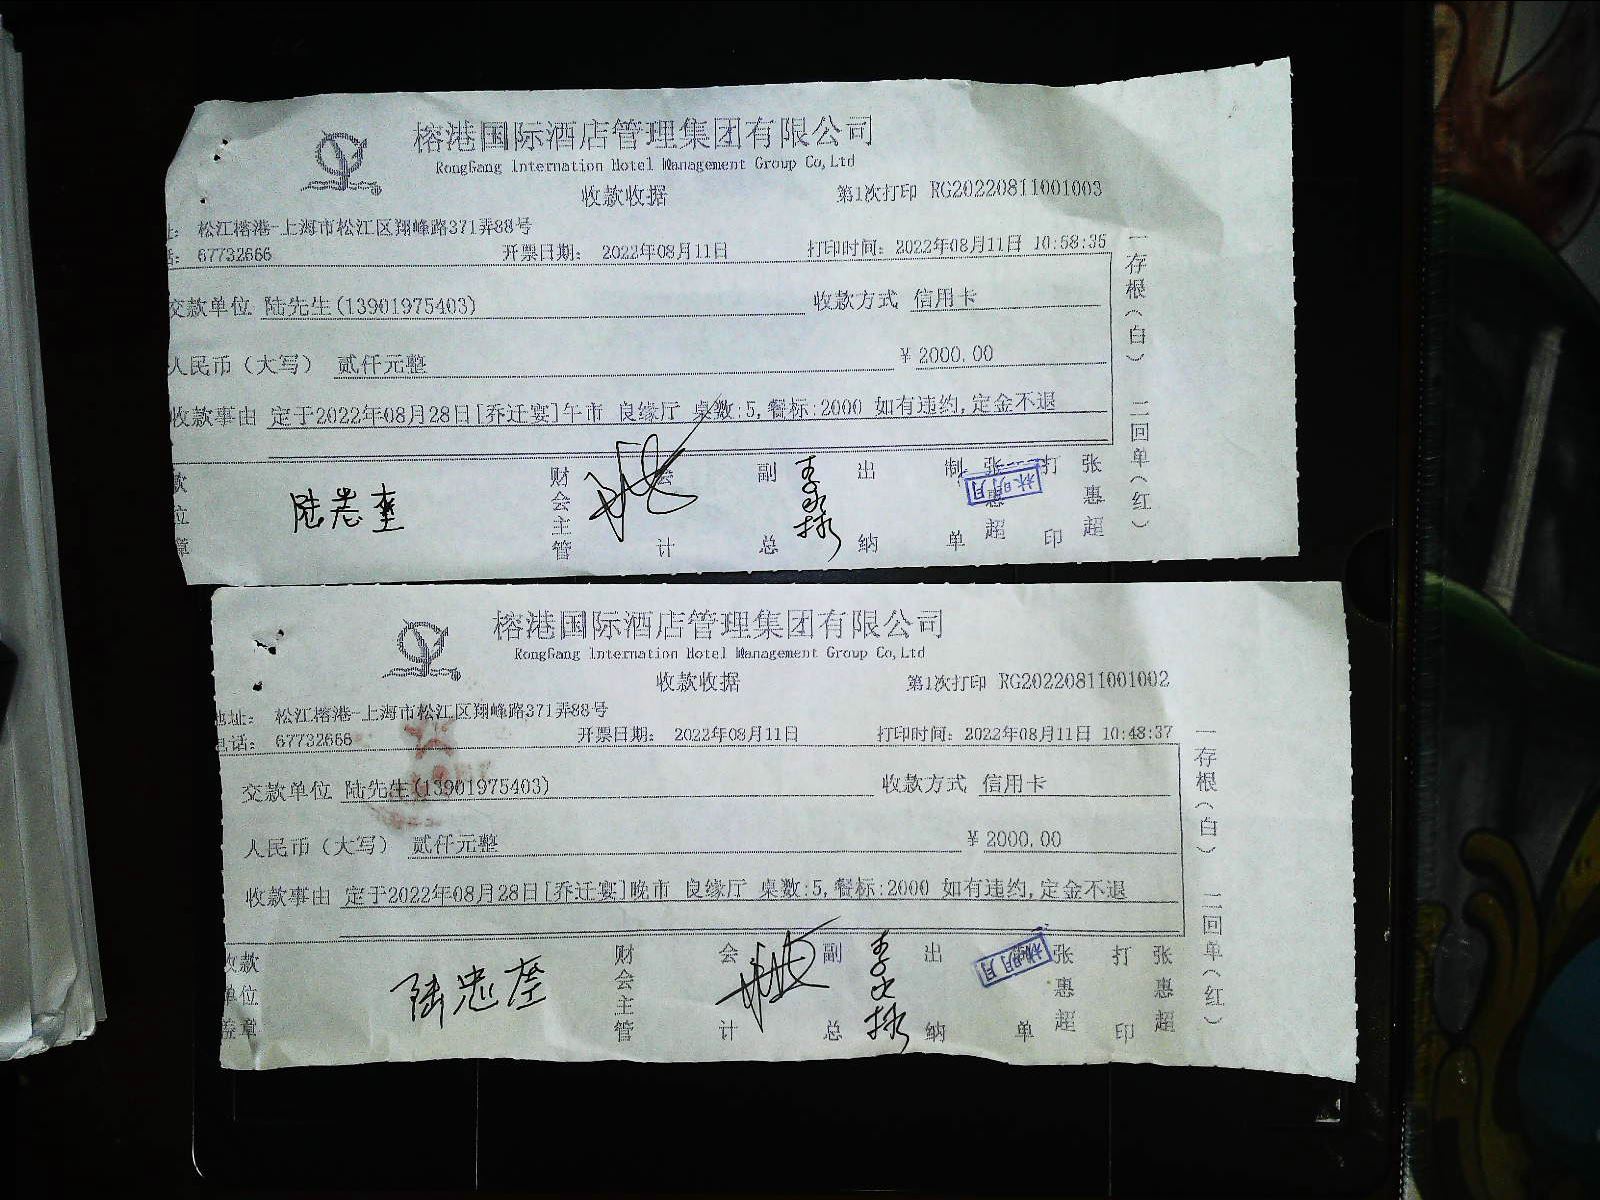 榕港国际酒店管理集团有限公司
RongGang Internation Hotel Management Group Co,Ltd
收款收据 第1次打印 RG20220811001003
址: 松江榕港-上海市松江区翔峰路371弄88号
话: 67732666 开票日期: 2022年08月11日 打印时间: 2022年08月11日 10:58:35
交款单位 陆先生(13901975403) 收款方式 信用卡
人民币（大写） 贰仟元整 ¥ 2000.00
收款事由 定于2022年08月28日[乔迁宴]午市 良缘厅 桌数:5,餐标:2000 如有违约,定金不退
款位章 陆忠 财会主管 会计 副总 李 出纳 制单 张惠超 打印 张惠超
林明月
一存根（白） 二回单（红）
榕港国际酒店管理集团有限公司
RongGang Internation Hotel Management Group Co,Ltd
收款收据 第1次打印 RG20220811001002
地址: 松江榕港-上海市松江区翔峰路371弄88号
电话: 67732666 开票日期: 2022年08月11日 打印时间: 2022年08月11日 10:48:37
交款单位 陆先生(13901975403) 收款方式 信用卡
人民币（大写） 贰仟元整 ¥ 2000.00
收款事由 定于2022年08月28日[乔迁宴]晚市 良缘厅 桌数:5,餐标:2000 如有违约,定金不退
收款单位盖章 陆忠 财会主管 会计 副总 李 出纳 单 张惠超 打印 张惠超
林明月
一存根（白） 二回单（红）